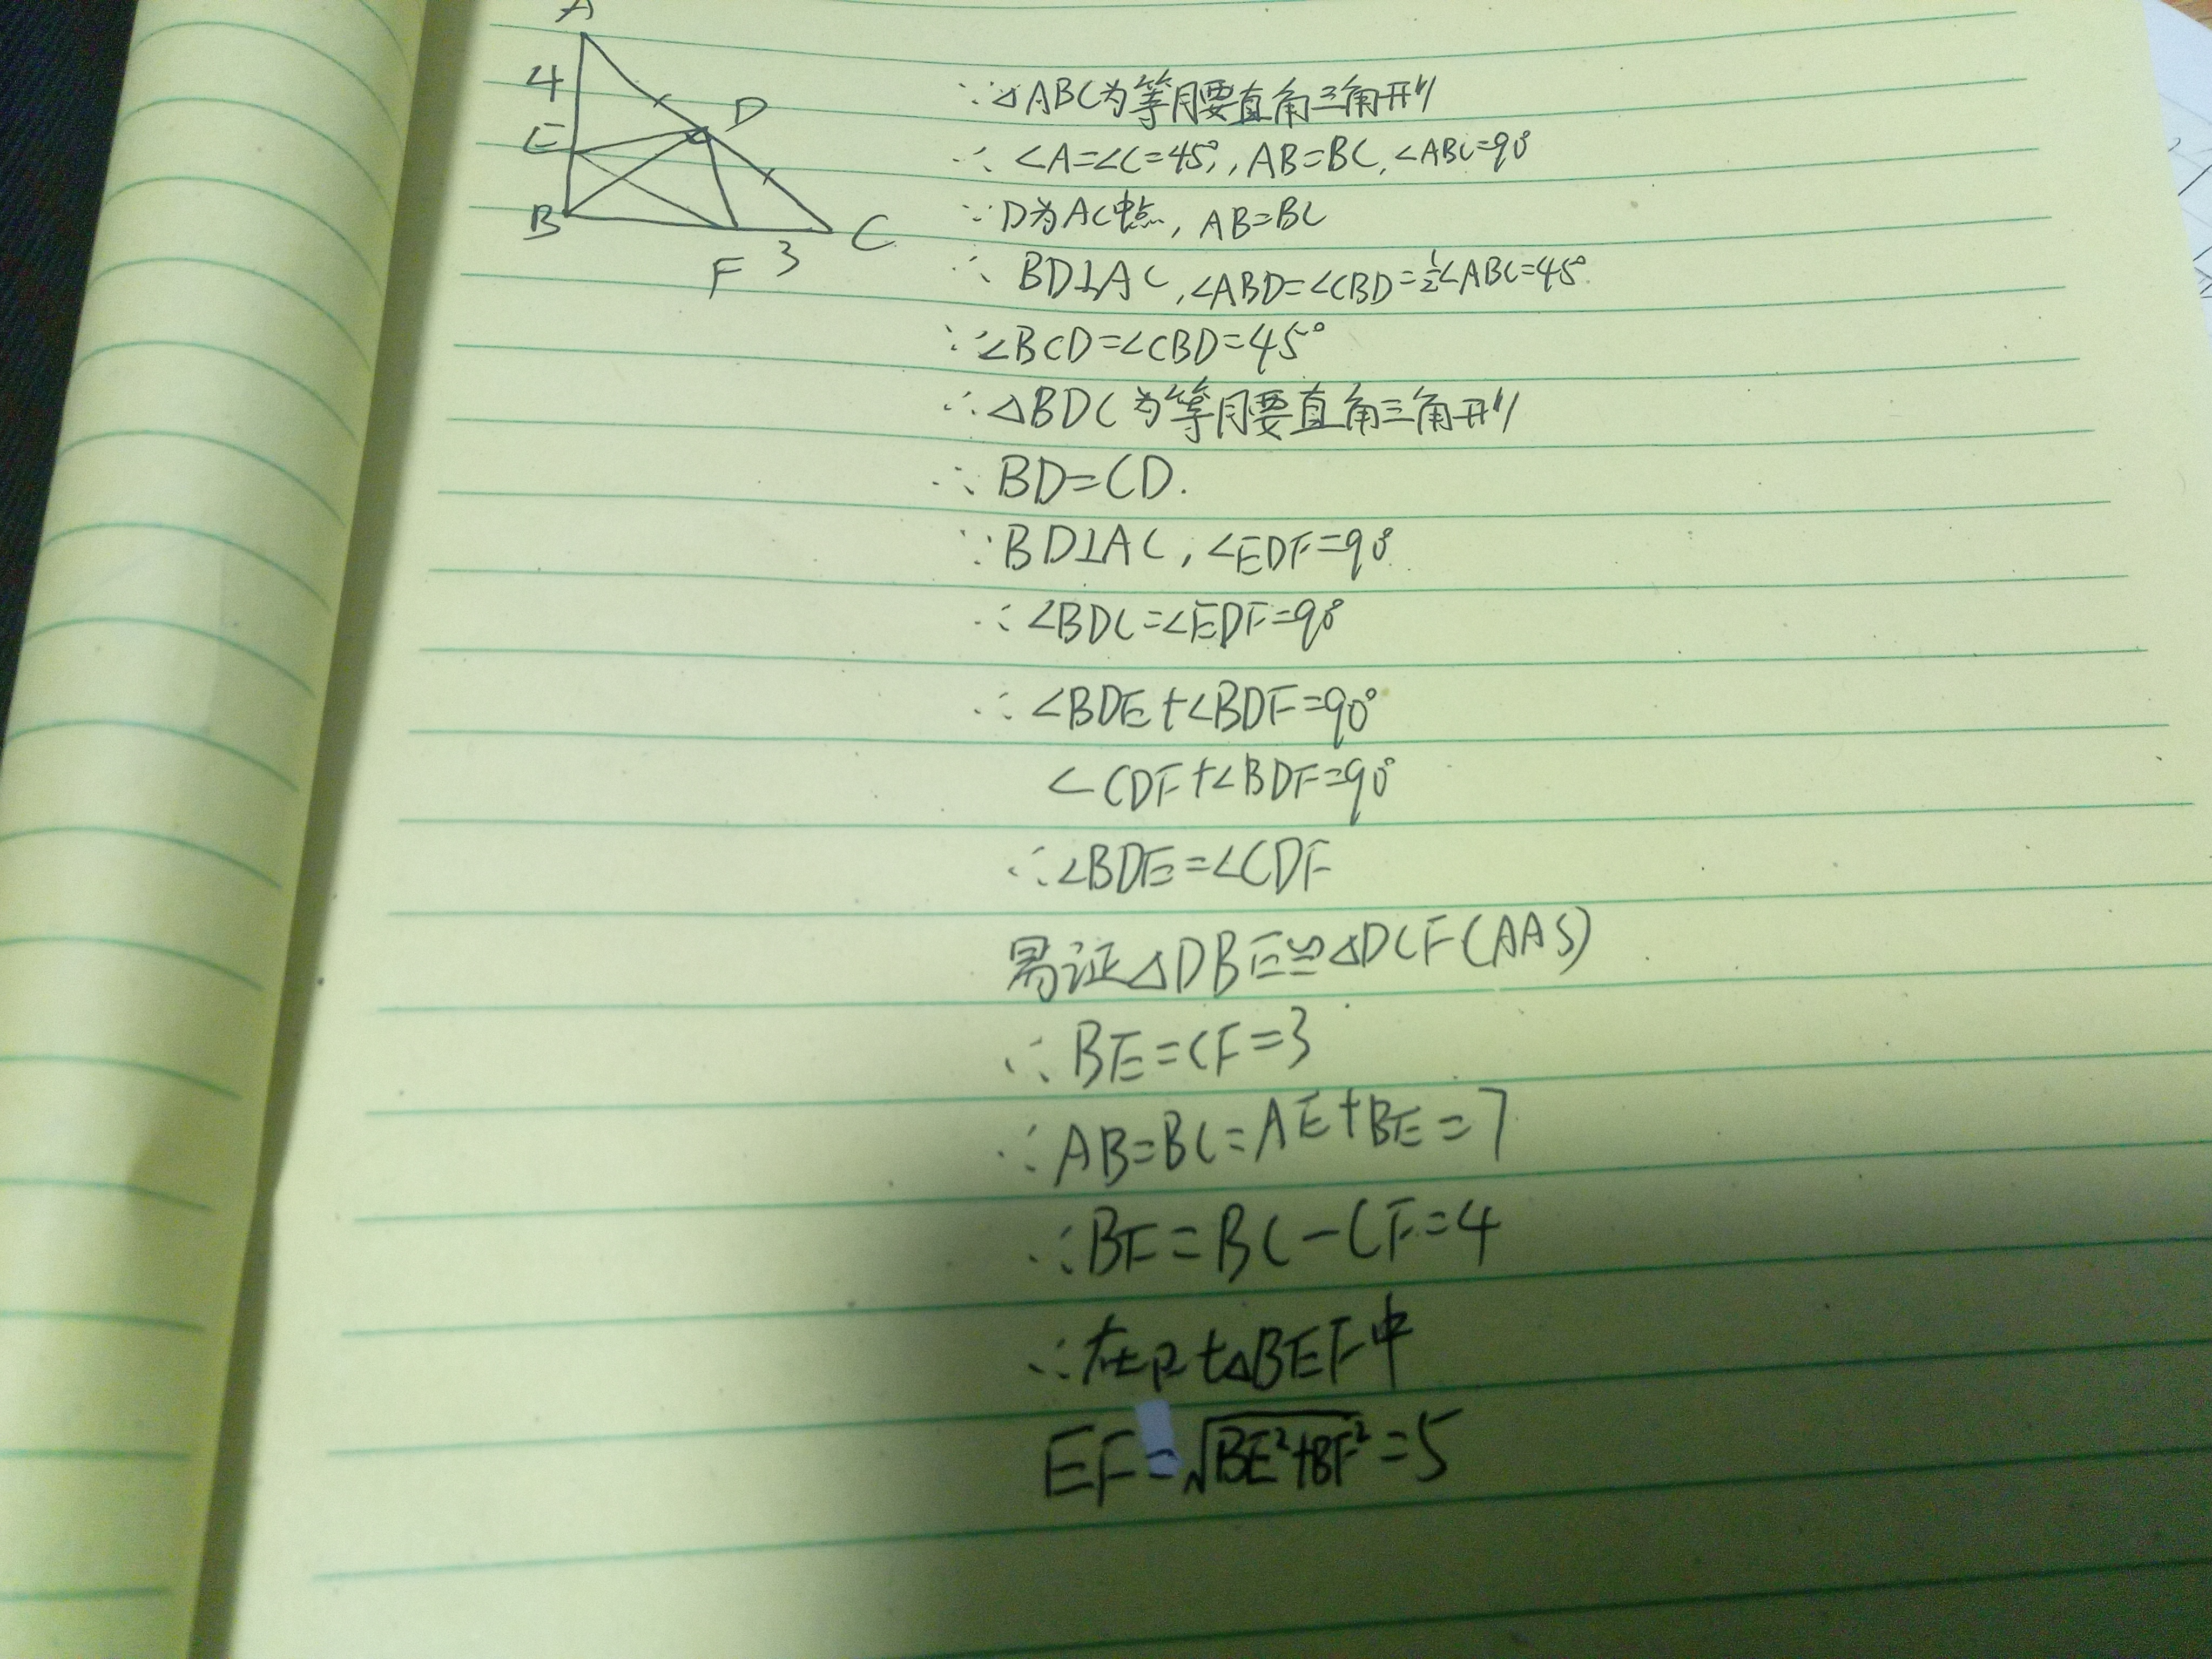 A
4
D
E
B
C
F 3
∵△ABC为等腰直角三角形
∴ ∠A=∠C=45°, AB=BC, ∠ABC=90°
∵D为AC中点, AB=BC
∴ BD⊥AC, ∠ABD=∠CBD=½∠ABC=45°
∵∠BCD=∠CBD=45°
∴△BDC为等腰直角三角形
∴ BD=CD.
∵BD⊥AC, ∠EDF=90°
∴ ∠BDC=∠EDF=90°
∴ ∠BDE+∠BDF=90°
∠CDF+∠BDF=90°
∴∠BDE=∠CDF
易证△DBE≌△DCF(AAS)
∴ BE=CF=3
∴ AB=BC=AE+BE=7
∴BF=BC-CF=4
∴在Rt△BEF中
EF=√BE²+BF²=5